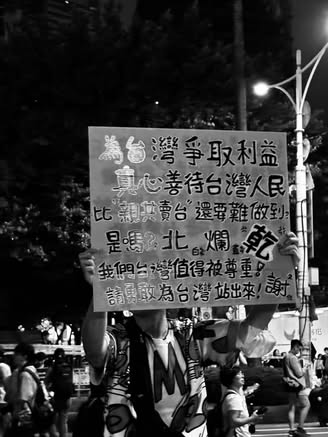 為台灣爭取利益
真心善待台灣人民
比"親共賣台"還要難做到?
是嗎? 北爛 乾
我們台灣值得被尊重!
請勇敢為台灣站出來! 謝
M